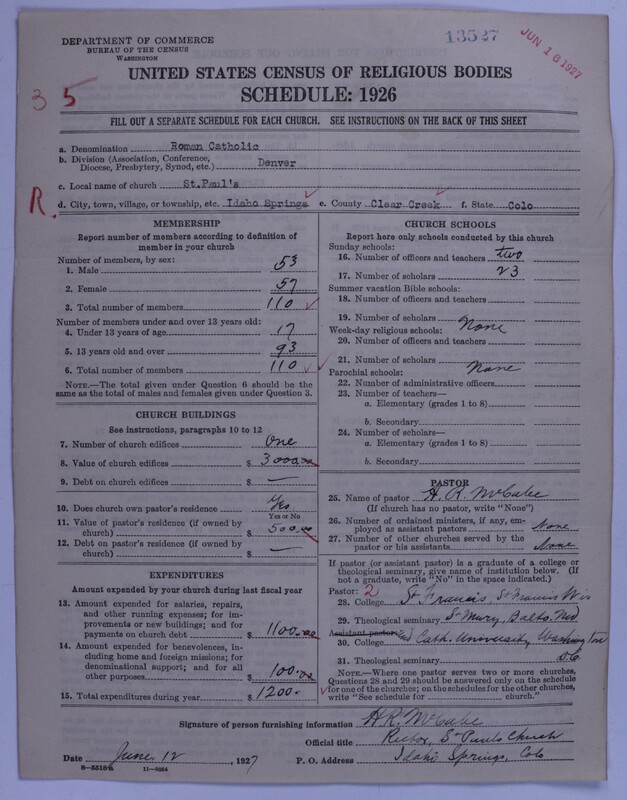 DEPARTMENT OF COMMERCE
BUREAU OF THE CENSUS
WASHINGTON
13527
JUN 16 1927
UNITED STATES CENSUS OF RELIGIOUS BODIES
SCHEDULE: 1926
35
FILL OUT A SEPARATE SCHEDULE FOR EACH CHURCH. SEE INSTRUCTIONS ON THE BACK OF THIS SHEET
a. Denomination Roman Catholic
b. Division (Association, Conference, Diocese, Presbytery, Synod, etc.) Denver
c. Local name of church St.Paul's
R.
d. City, town, village, or township, etc. Idaho Springs e. County Clear Creek f. State Colo
MEMBERSHIP
Report number of members according to definition of
member in your church
Number of members, by sex:
1. Male 53
2. Female 57
3. Total number of members 110
Number of members under and over 13 years old:
4. Under 13 years of age 17
5. 13 years old and over 93
6. Total number of members 110
NOTE.—The total given under Question 6 should be
same as the total of males and females given under Question 3.
CHURCH BUILDINGS
See instructions, paragraphs 10 to 12
7. Number of church edifices One
8. Value of church edifices $ 3000.00
9. Debt on church edifices $ —
10. Does church own pastor's residence Yes
Yes or No
11. Value of pastor's residence (if owned by
church) $ 500.00
12. Debt on pastor's residence (if owned by
church) $ —
EXPENDITURES
Amount expended by your church during last fiscal year
13. Amount expended for salaries, repairs,
and other running expenses; for im-
provements or new buildings; and for
payments on church debt $ 1100.00
14. Amount expended for benevolences, in-
cluding home and foreign missions; for
denominational support; and for all
other purposes $ 100.00
15. Total expenditures during year $ 1200.
CHURCH SCHOOLS
Report here only schools conducted by this church
Sunday schools:
16. Number of officers and teachers two
17. Number of scholars 23
Summer vacation Bible schools:
18. Number of officers and teachers
19. Number of scholars None
Week-day religious schools:
20. Number of officers and teachers
21. Number of scholars None
Parochial schools:
22. Number of administrative officers
23. Number of teachers—
a. Elementary (grades 1 to 8)
b. Secondary
24. Number of scholars—
a. Elementary (grades 1 to 8)
b. Secondary
PASTOR
25. Name of pastor H. R. McCabe
(If church has no pastor, write "None")
26. Number of ordained ministers, if any, em-
ployed as assistant pastors None
27. Number of other churches served by the
pastor or his assistants None
If pastor (or assistant pastor) is a graduate of a college or
theological seminary, give name of institution below. (If
not a graduate, write "No" in the space indicated.)
Pastor: 2
28. College St Francis, St Francis Wis
29. Theological seminary St Mary, Balto, Md
Assistant pastor: and
30. College Cath. University, Washington
31. Theological seminary D.C
NOTE.—Where one pastor serves two or more churches,
Questions 28 and 29 should be answered only on the schedule
for one of the churches; on the schedules for the other churches,
write "See schedule for church."
Signature of person furnishing information H.R. McCabe
Official title Rector, St Pauls Church
Date June 12, 1927 P. O. Address Idaho Springs, Colo